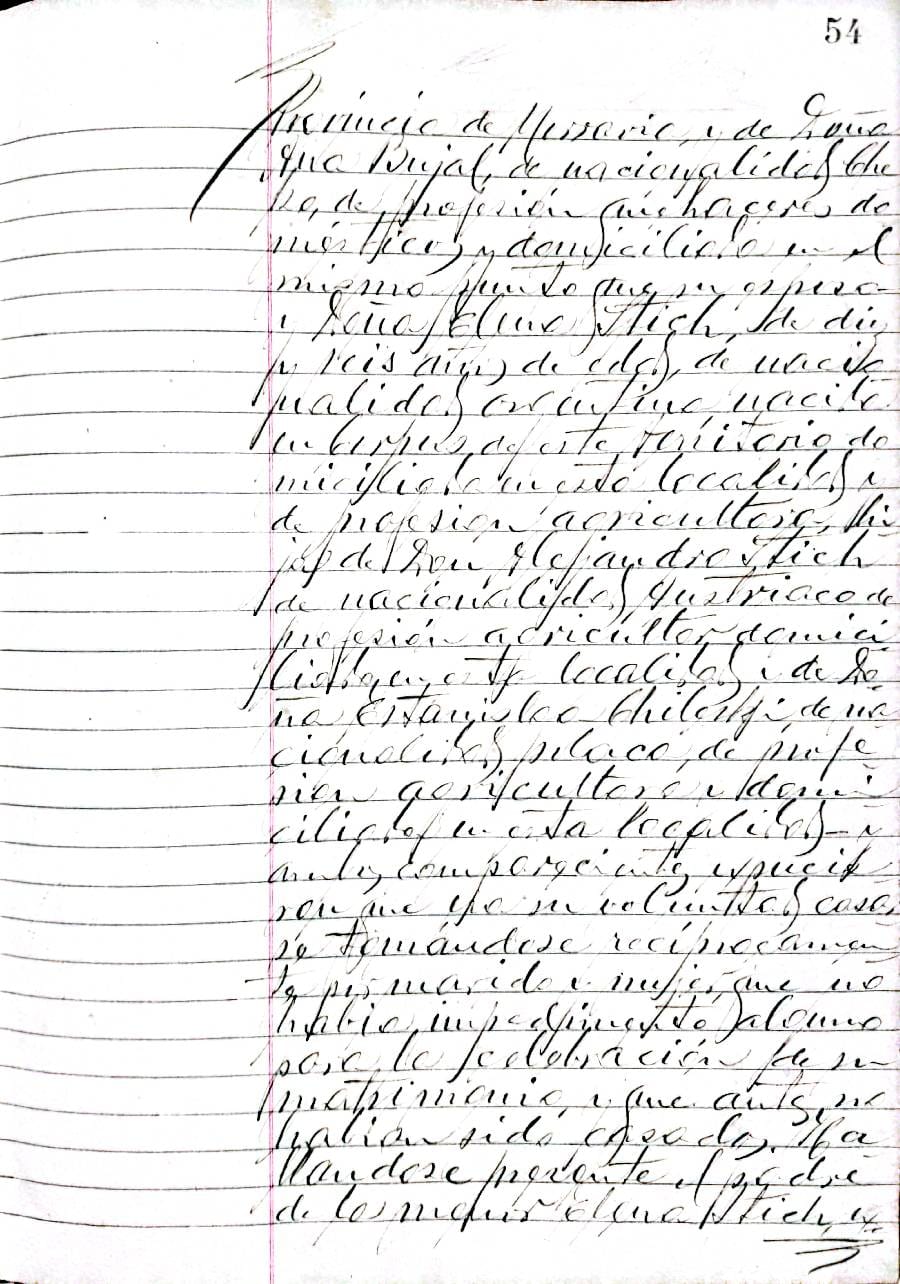 54
Provincia de Moravia, y de Doña
Ana Bujal, de nacionalidad Che
ca, de profesión quehaceres do
mésticos y domiciliada en el
mismo punto que su esposo
y Doña Elena Stich, de diez
y seis años de edad, de nacio
nalidad argentina, nacida
en Corpus, de este territorio, do
miciliada en esta localidad y
de profesion agricultora, hi
ja de Don Alejandro Stich
de nacionalidad Austriaco de
profesión agricultor domici
liado en esta localidad y de Do
ña Estanislaa de na
cionalidad polaca, de profe
sion agricultora y domi
ciliados en esta localidad – y
ambos comparecientes expucie
ron que era su voluntad casar
se tomándose reciprocamen
te por marido y mujer, que no
habia impedimento alguno
para la celebración de su
matrimonio, y que antes no
habian sido casados. Ha
llandose presente el padre
de los menor Elena Stich, ex